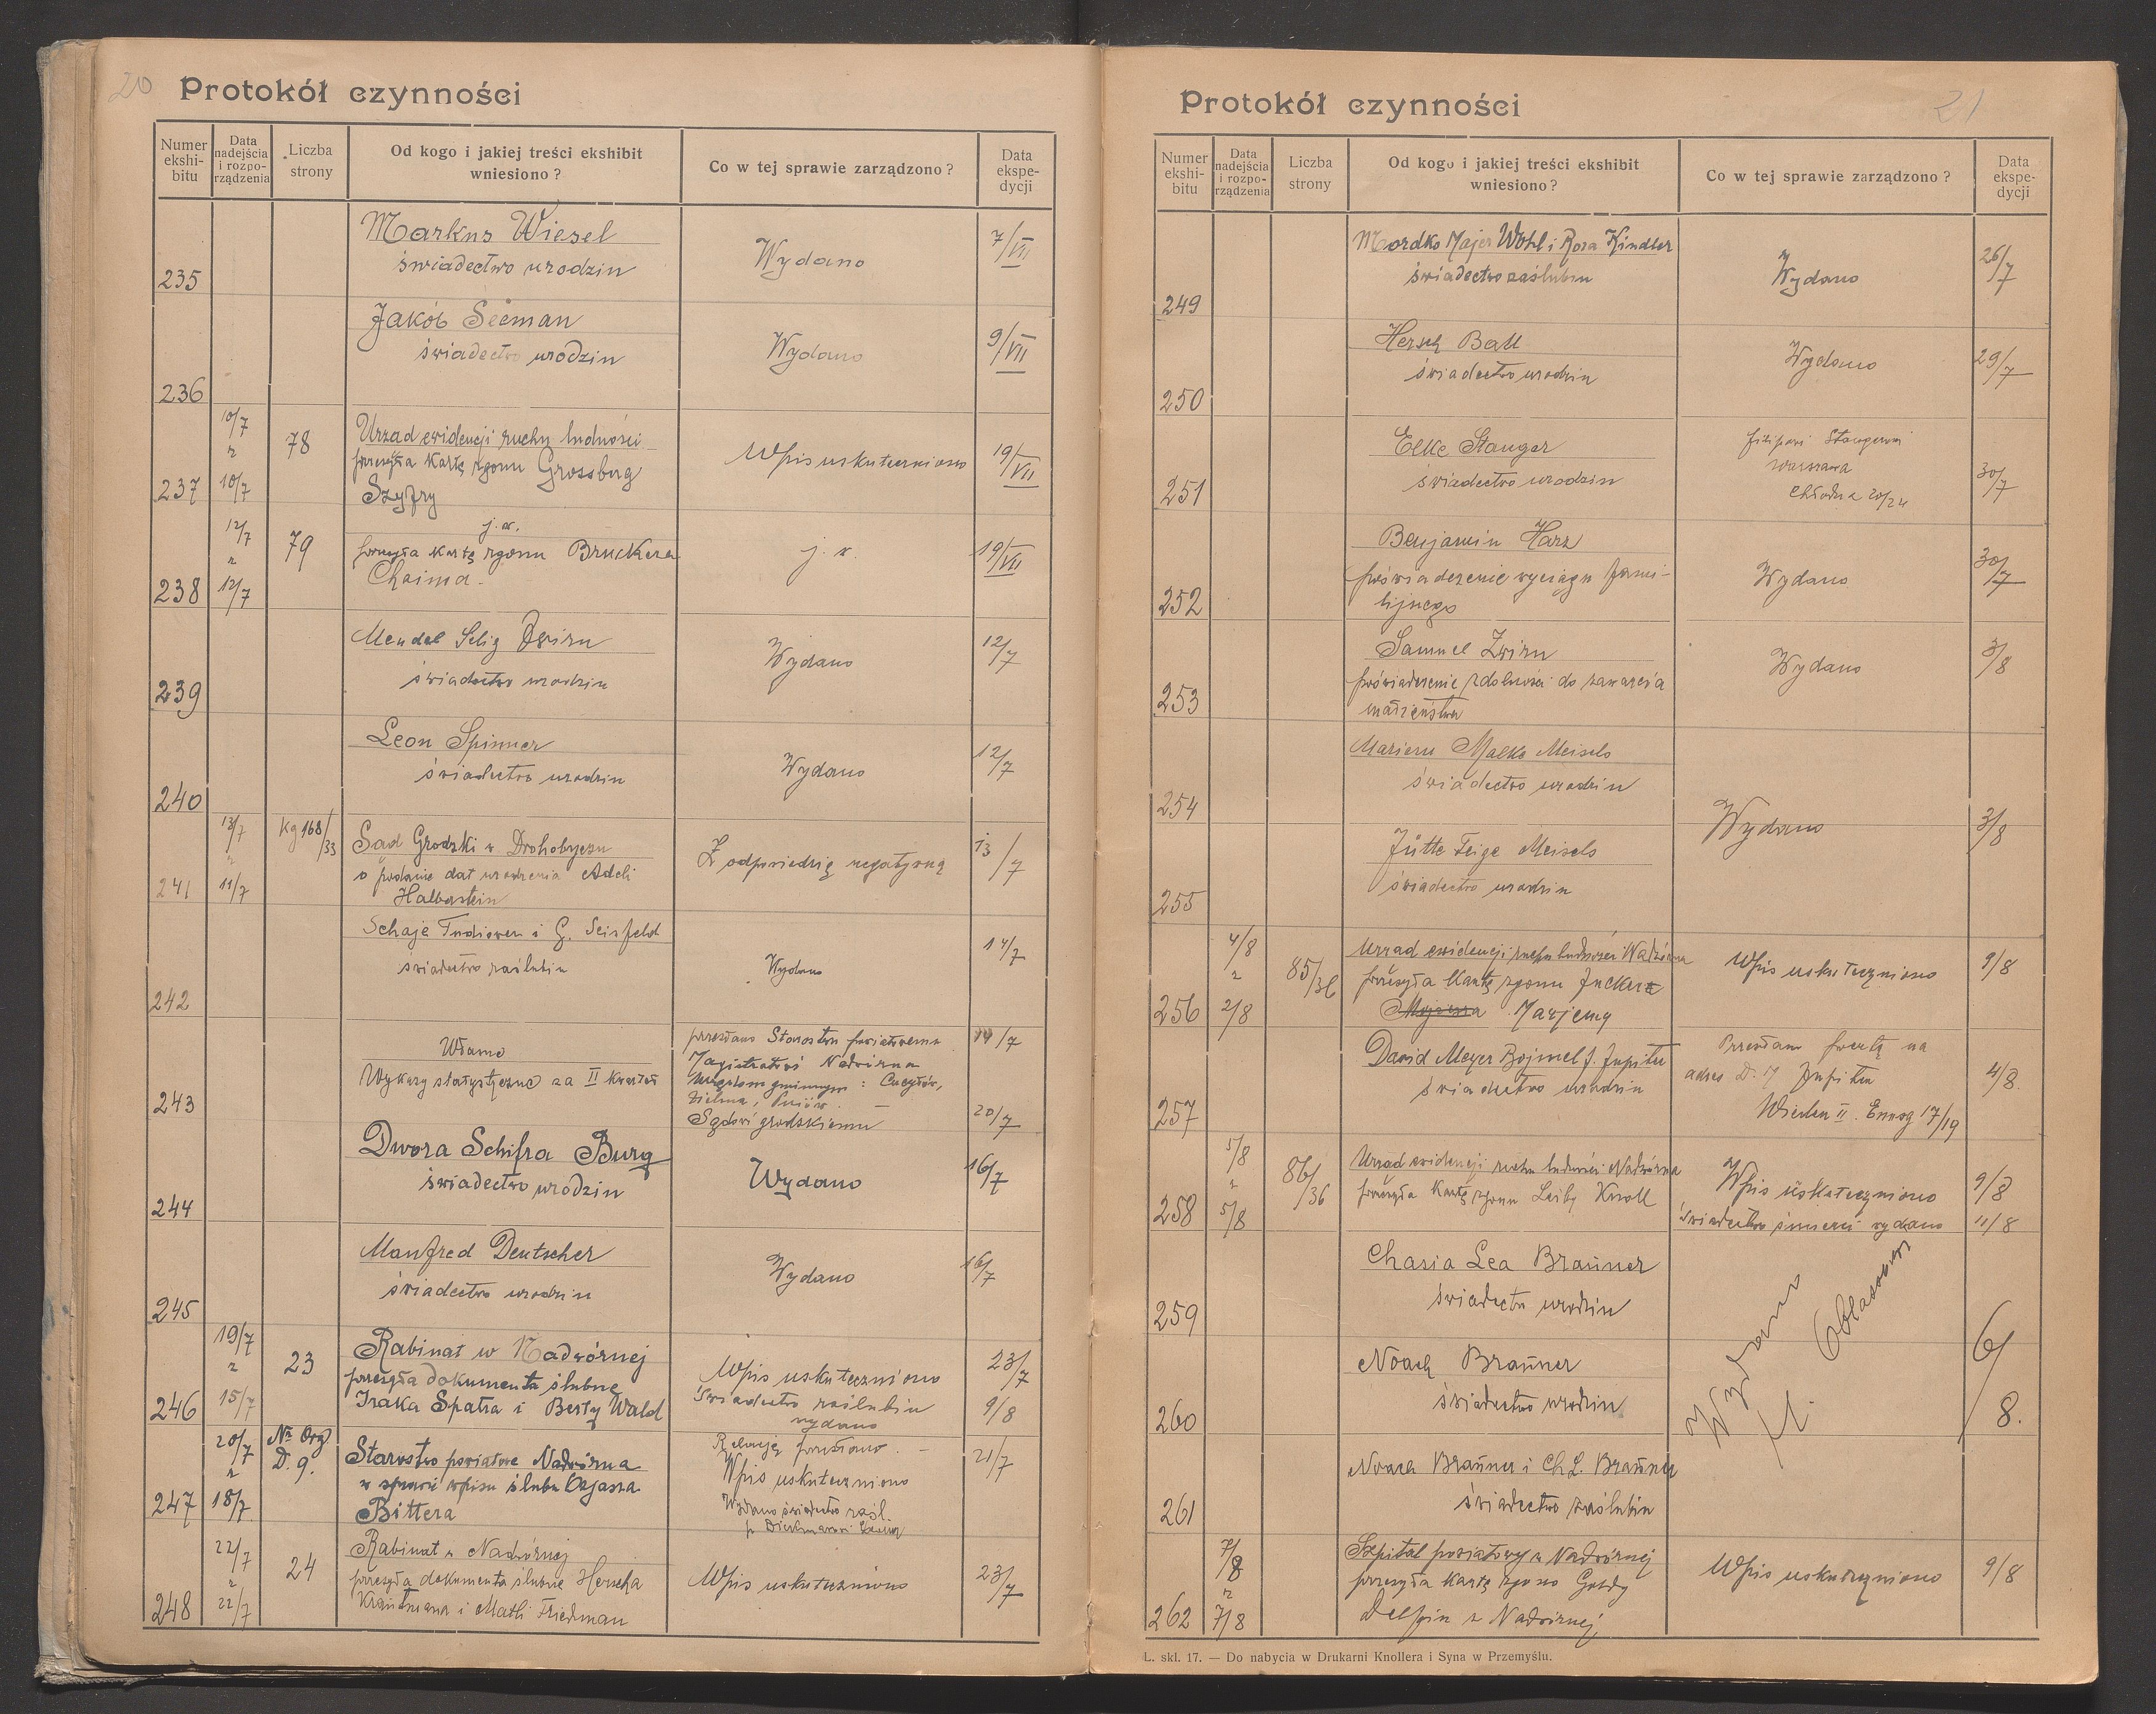 20
Protokół czynności
Numer ekshi-bitu
Data nadejścia i rozpo-rządzenia
Liczba strony
Od kogo i jakiej treści ekshibit wniesiono?
Co w tej sprawie zarządzono?
Data ekspe-dycji
235 Markus Wiesel Wydano 7/VII
świadectwo urodzin
236 Jakób Seeman Wydano 9/VII
świadectwo urodzin
237 10/7 z 10/7 78 Urząd ewidencji ruchu ludności Wpis uskuteczniono 19/VII
przesyła kartę zgonu Grossberg
Szyfry
238 12/7 z 12/7 79 j.w. j.w. 19/VII
przesyła kartę zgonu Bruckera
Chaima
239 Mendel Selig Zwirn Wydano 12/7
świadectwo urodzin
240 Leon Spinner Wydano 12/7
świadectwo urodzin
241 13/7 z 11/7 Kg 168/33 Sąd Grodzki w Drohobyczu Z odpowiedzią negatywną 13/7
o podanie dat urodzenia Adeli
Halberstein
242 Schaje i G. Seisfeld Wydano 14/7
świadectwo zaślubin
243 Własne przesłano Starostwu powiatowemu 14/7
Wykazy statystyczne za II kwartał Magistratowi Nadwórna
Urzędom gminnym: Cucyłów,
Zielona, Pniów
Sądowi grodzkiemu 20/7
244 Dwora Schifra Burg Wydano 16/7
świadectwo urodzin
245 Manfred Deutscher Wydano 16/7
świadectwo urodzin
246 19/7 z 15/7 23 Rabinat w Nadwórnej Wpis uskuteczniono 23/7
przesyła dokumenta ślubne świadectwo zaślubin 9/8
Izaka Spatza i Berty Wald wydano
247 20/7 z 18/7 Nr Org. D. 9. Starostwo powiatowe Nadwórna Relację przesłano 21/7
w sprawie wpisu ślubu Ozjasza Wpis uskuteczniono
Bittera Wydano świadectwo zaśl.
248 22/7 z 22/7 24 Rabinat w Nadwórnej Wpis uskuteczniono 23/7
przesyła dokumenta ślubne Herscha
i Matli Friedman
21
Protokół czynności
Numer ekshi-bitu
Data nadejścia i rozpo-rządzenia
Liczba strony
Od kogo i jakiej treści ekshibit wniesiono?
Co w tej sprawie zarządzono?
Data ekspe-dycji
249 Mordko Majer Wohl i Roza Kindler Wydano 26/7
świadectwo zaślubin
250 Hersch Ball Wydano 29/7
świadectwo urodzin
251 Elke Stanger Filipowi Stangerowi 30/7
świadectwo urodzin Warszawa
Chłodna 20/24
252 Benjamin Harz Wydano 30/7
poświadczenie wyciągu fami-
lijnego
253 Samuel Zwirn Wydano 3/8
poświadczenie zdolności do zawarcia
małżeństwa
254 Mariem Malka Meisels
świadectwo urodzin
Wydano 3/8
255 Jütte Feige Meisels
świadectwo urodzin
256 4/8 z 2/8 85/36 Urząd ewidencji ruchu ludności Nadwórna Wpis uskuteczniono 9/8
przesyła kartę zgonu Zucker
Marjemy
257 Dawid Meyer Bojmel f. Jupiter Przesłano pocztą na 4/8
świadectwo urodzin adres D. M Jupiter
Wieden II. 17/19
258 5/8 z 5/8 86/36 Urząd ewidencji ruchu ludności Nadwórna Wpis uskuteczniono 9/8
przesyła kartę zgonu Leiby Knoll świadectwo śmierci wydano 11/8
259 Chasia Lea Braŭner
świadectwo urodzin
260 Noach Braŭner Wydano 6/8.
świadectwo urodzin
261 Noacha Braŭner i Ch L. Braŭner
świadectwo zaślubin
262 7/8 z 7/8 Szpital powiatowy w Nadwórnej Wpis uskuteczniono 9/8
przesyła kartę zgonu Goldy
Delfin z Nadwórnej
L. skl. 17. — Do nabycia w Drukarni Knollera i Syna w Przemyślu.